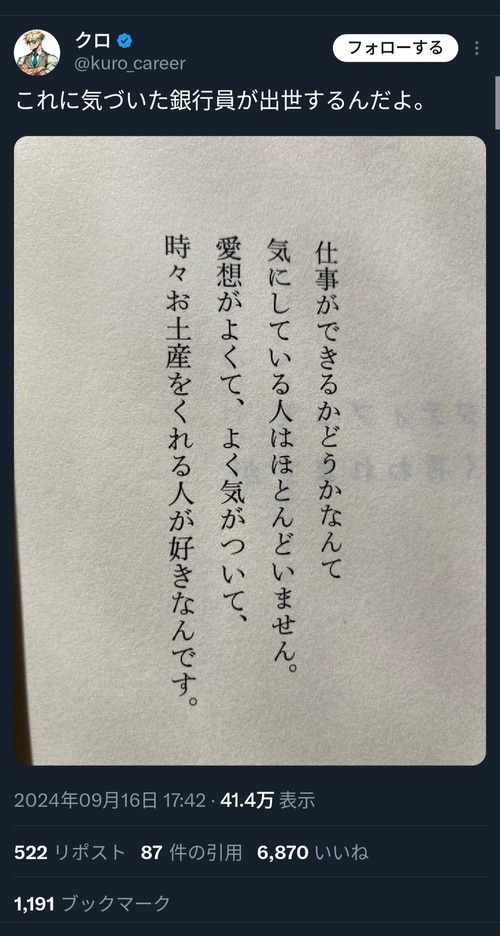 クロ
@kuro_career
フォローする
これに気づいた銀行員が出世するんだよ。
仕事ができるかどうかなんて
気にしている人はほとんどいません。
愛想がよくて、よく気がついて、
時々お土産をくれる人が好きなんです。
2024年09月16日 17:42 · 41.4万 表示
522 リポスト 87 件の引用 6,870 いいね
1,191 ブックマーク